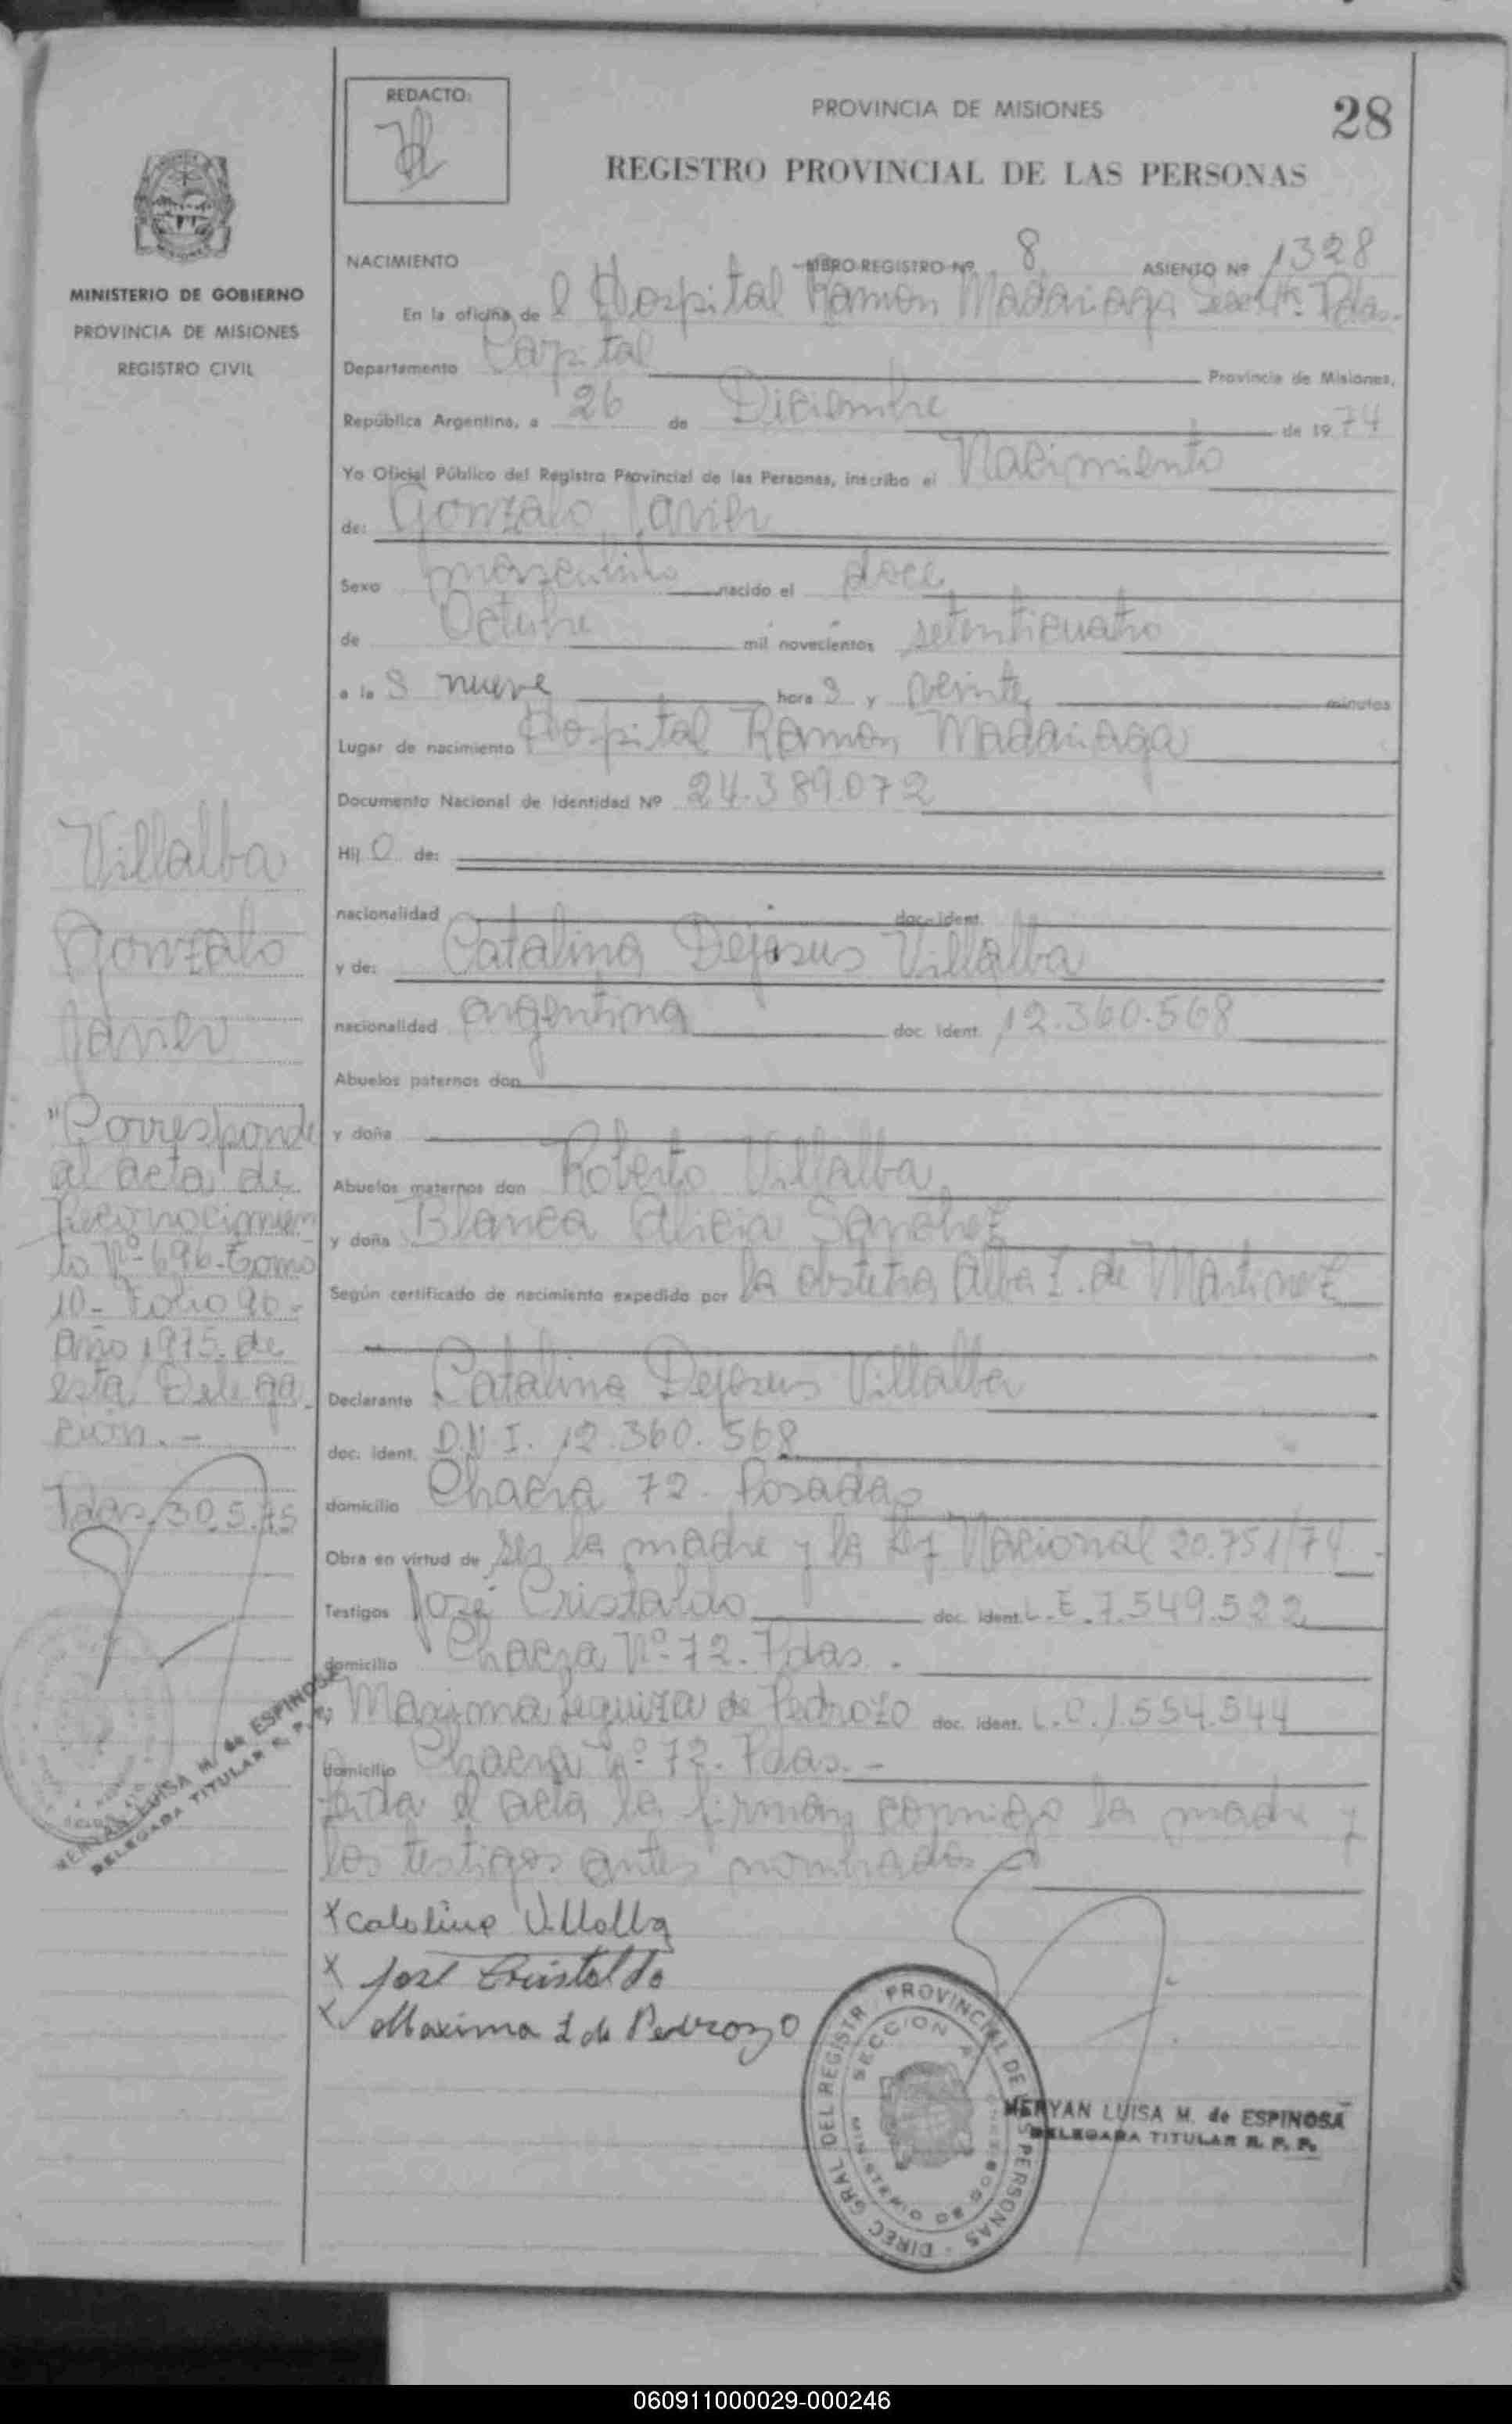 REDACTO:
PROVINCIA DE MISIONES
28
REGISTRO PROVINCIAL DE LAS PERSONAS
MINISTERIO DE GOBIERNO
PROVINCIA DE MISIONES
REGISTRO CIVIL
NACIMIENTO LIBRO REGISTRO Nº 8 ASIENTO Nº 1328
En la oficina de l Hospital Ramon Madariaga Pdas.
Departamento Capital Provincia de Misiones,
República Argentina, a 26 de Diciembre de 19 74
Yo Oficial Público del Registro Provincial de las Personas, inscribo el Nacimiento
de: Gonzalo Javier
Sexo masculino nacido el doce
de Octubre mil novecientos setenticuatro
a la s nueve hora s y veinte minutos
Lugar de nacimiento Hospital Ramon Madariaga
Documento Nacional de Identidad Nº 24.389.072
Hij o de:
nacionalidad doc. ident.
y de: Catalina Dejesus Villalba
nacionalidad argentina doc. ident. 12.360.568
Abuelos paternos don
y doña
Abuelos maternos don Roberto Villalba
y doña Blanca Alicia Sanchez
Según certificado de nacimiento expedido por la obstetra Alba I. de Martinez
Declarante Catalina Dejesus Villalba
doc. ident. D.N.I. 12.360.568
domicilio Chacra 72. Posadas
Obra en virtud de ser la madre y la Ley Nacional 20.751/74
Testigos José Cristaldo doc. ident. L.E. 7.549.522
domicilio Chacra Nº 72. Pdas.
Maxima Leguiza de Pedrozo doc. ident. L.C. 1.554.544
domicilio Chacra Nº 72. Pdas.-
Leida el acta la firman conmigo la madre y
los testigos antes nombrados
x Catalina Villalba
x José Cristaldo
x Maxima L de Pedrozo
Villalba
Gonzalo
Javier
"Corresponde
al acta de
Reconocimien
to Nº 696. Tomo
10- Folio 96-
Año 1975. de
esta Delega
ción.-
Pdas. 30.5.75
MERYAN LUISA M. de ESPINOSA
DELEGADA TITULAR R. P. P.
DIREC GRAL DEL REGISTR PROVINCIAL DE LAS PERSONAS
SECCION
MINISTERIO DE GOBIERNO
MERYAN LUISA M. de ESPINOSA
DELEGADA TITULAR R. P. P.
060911000029-000246